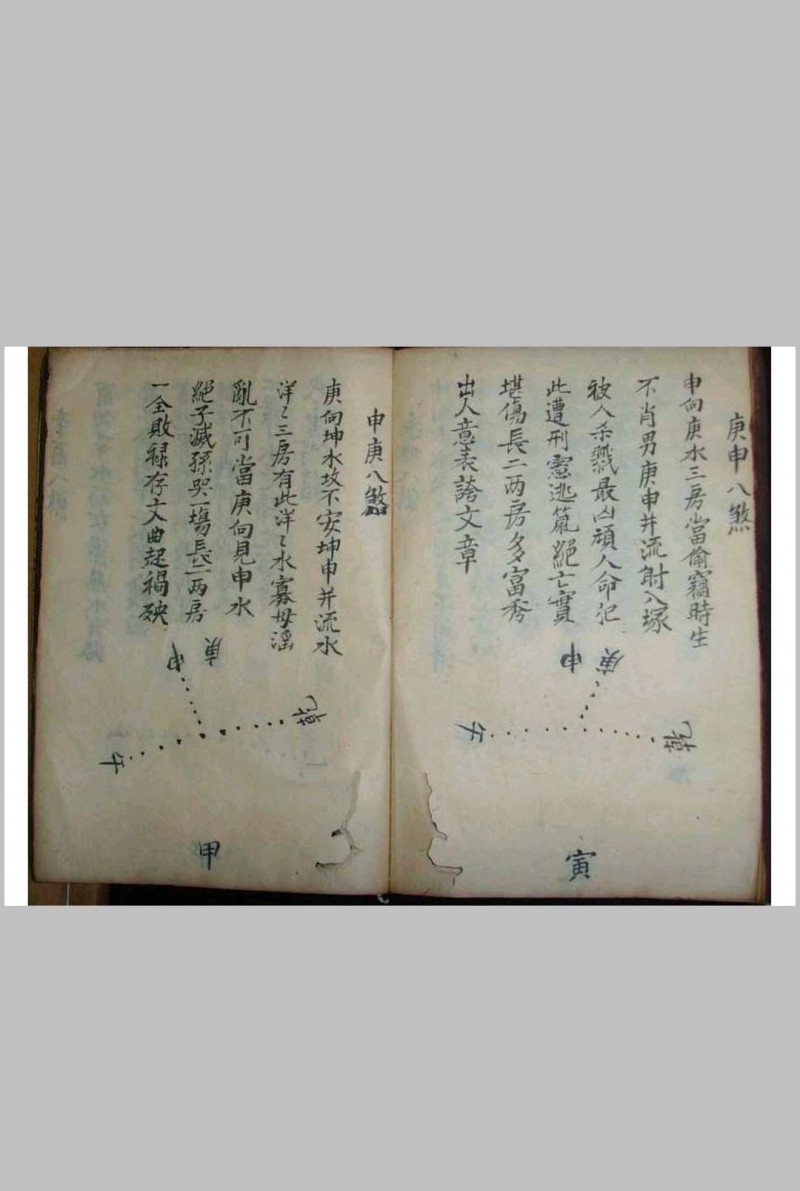 庚申八煞
申向庚水三房當偷竊時生
不肖男庚申并流射入塚
被人杀戮最凶頑人命犯
此遭刑憲逃竄絕亡實
堪傷長二两房多富秀
出人意表誇文章
庚
申
乾
午
寅
申庚八煞
庚向坤水坟不安坤申并流水
洋〻三房有此洋〻水寡母滛
亂不可當庚向見申水
絕子滅孫哭一塲長二两房
一全敗祿存文曲起禍殃
庚
申
乾
午
甲